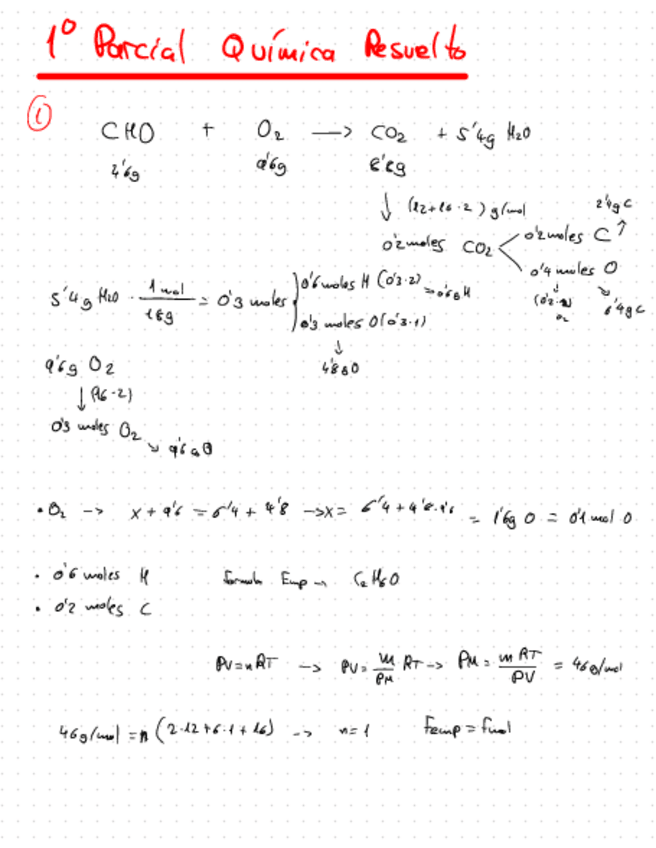 1º Parcial Química Resuelto
①
CHO + O₂ → CO₂ + 5'4g H₂O
4'6g 9'6g 8'8g
↓ (12+16·2) g/mol 2'4g C
0'2 moles CO₂ 0'2 moles C ↑
0'4 moles O
6'4g C
5'4g H₂O · 1 mol / 18g = 0'3 moles 0'6 moles H (0'3·2) → 0'6g H
0'3 moles O (0'3·1)
↓
4'8g O
9'6g O₂
↓ (16·2)
0'3 moles O₂ ↘ 9'6g O
• O₂ -> x + 9'6 = 6'4 + 4'8 -> x = 6'4 + 4'8 - 9'6 = 1'6g O = 0'1 mol O
• 0'6 moles H formula Emp → C₂H₆O
• 0'2 moles C
PV = nRT -> PV = m/PM RT -> PM = mRT/PV = 46g/mol
46g/mol = n (2·12+6·1+16) -> n=1 Femp = Fmol